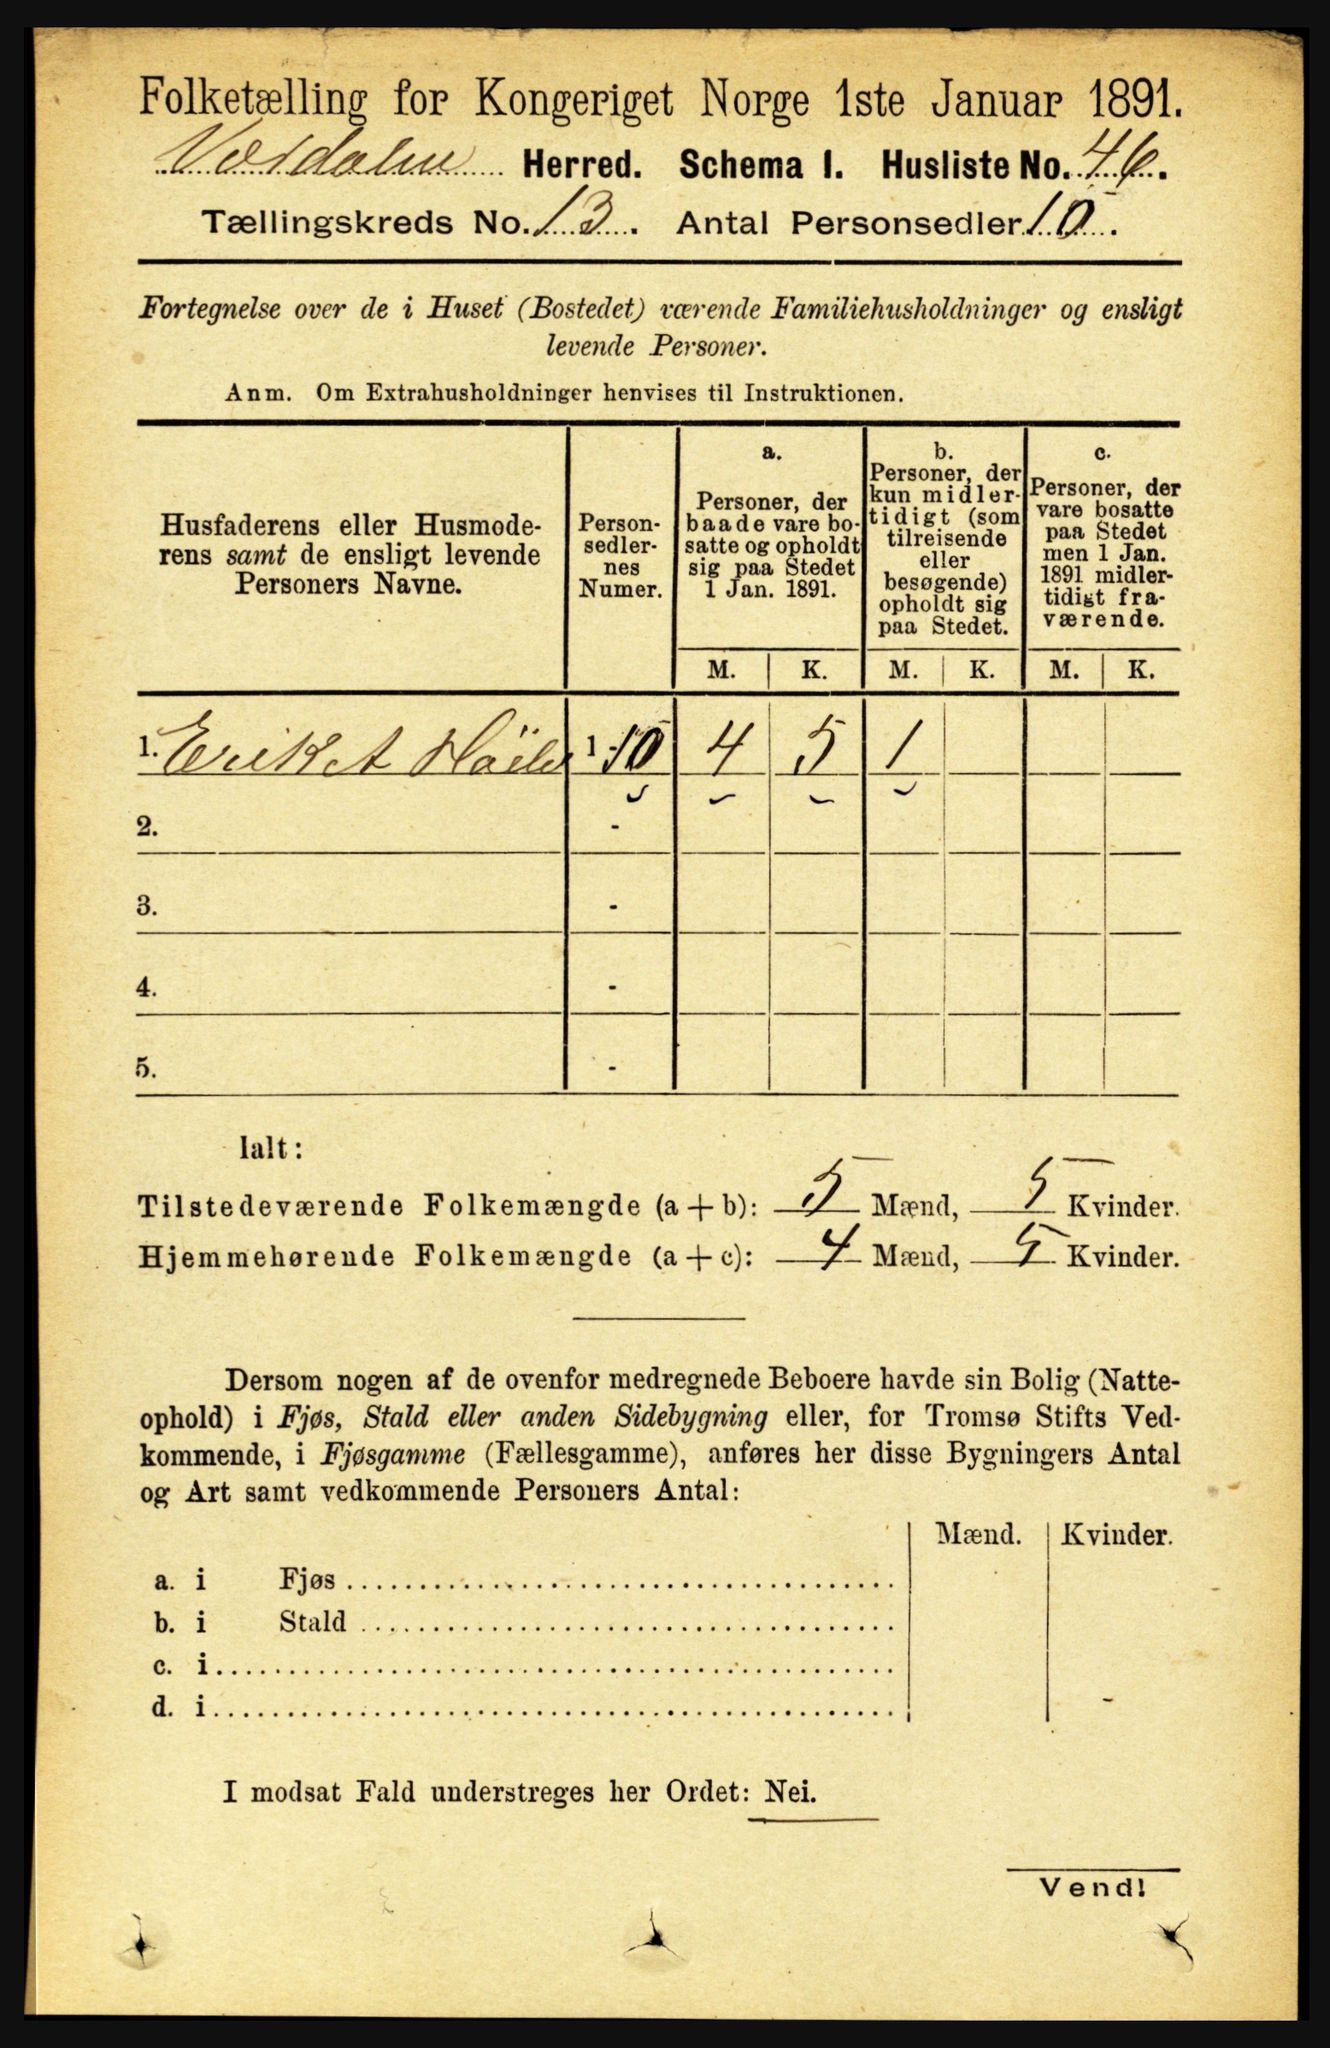 Folketælling for Kongeriget Norge 1ste Januar 1891.
Værdalen Herred. Schema I. Husliste No. 46.
Tællingskreds No. 13. Antal Personsedler 10.
Fortegnelse over de i Huset (Bostedet) værende Familiehusholdninger og ensligt
levende Personer.
Anm. Om Extrahusholdninger henvises til Instruktionen.
Husfaderens eller Husmode-
rens samt de ensligt levende
Personers Navne.
Person-
sedler-
nes
Numer.
a.
Personer, der
baade vare bo-
satte og opholdt
sig paa Stedet
1 Jan. 1891.
b.
Personer, der
kun midler-
tidigt (som
tilreisende
eller
besøgende)
opholdt sig
paa Stedet.
c.
Personer, der
vare bosatte
paa Stedet
men 1 Jan.
1891 midler-
tidigt fra-
værende.
M. K. M. K. M. K.
1. Erik A 1-10 4 5 1
2. -
3. -
4. -
5. -
Ialt:
Tilstedeværende Folkemængde (a + b): 5 Mænd, 5 Kvinder.
Hjemmehørende Folkemængde (a + c): 4 Mænd, 5 Kvinder.
Dersom nogen af de ovenfor medregnede Beboere havde sin Bolig (Natte-
ophold) i Fjøs, Stald eller anden Sidebygning eller, for Tromsø Stifts Ved-
kommende, i Fjøsgamme (Fællesgamme), anføres her disse Bygningers Antal
og Art samt vedkommende Personers Antal:
Mænd. Kvinder.
a. i Fjøs
b. i Stald
c. i
d. i
I modsat Fald understreges her Ordet: Nei.
Vend!